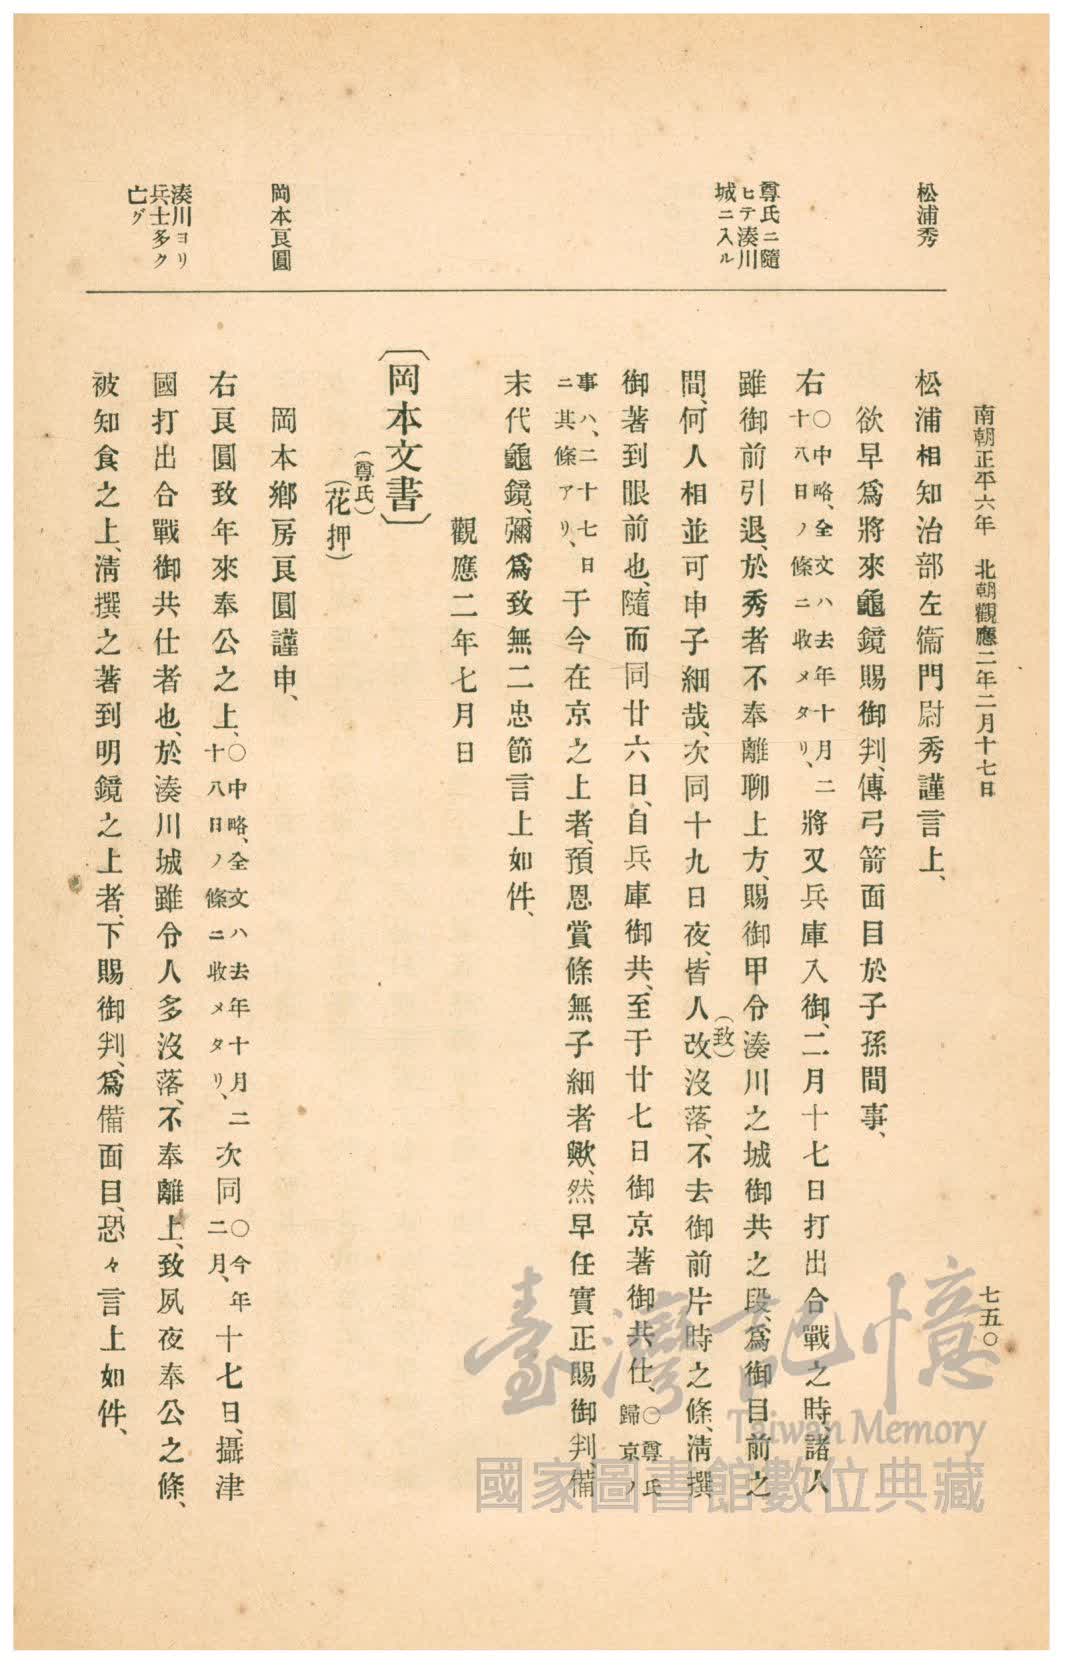 南朝正平六年　北朝觀應二年二月十七日
七五〇
松浦秀
尊氏ニ隨
ヒテ湊川
城ニ入ル
岡本良圓
湊川ヨリ
兵士多ク
亡グ
松浦相知治部左衞門尉秀謹言上、
欲早爲將來龜鏡賜御判、傳弓箭面目於子孫間事、
右〇中略、全文ハ去年十月二十八日ノ條ニ收メタリ、將又兵庫入御、二月十七日打出合戰之時、諸人
雖御前引退、於秀者不奉離聊上方、賜御甲令湊川之城御共之段、爲御目前之
間、何人相並可申子細哉、次同十九日夜、皆人改(致)沒落、不去御前片時之條、淸撰
御著到眼前也、隨而同廿六日、自兵庫御共、至于廿七日御京著御共仕、〇尊氏歸京ノ
事ハ、二十七日ニ其條アリ、于今在京之上者、預恩賞條無子細者歟、然早任實正賜御判、備
末代龜鏡、彌爲致無二忠節言上如件、
觀應二年七月日
(尊氏)
(花押)
〔岡本文書〕
岡本鄕房良圓謹申、
右良圓致年來奉公之上、〇中略、全文ハ去年十月二十八日ノ條ニ收メタリ、次同〇今年二月、十七日、攝津
國打出合戰御共仕者也、於湊川城雖令人多沒落、不奉離上、致夙夜奉公之條、
被知食之上、淸撰之著到明鏡之上者、下賜御判、爲備面目、恐々言上如件、
臺灣記憶
Taiwan Memory
國家圖書館數位典藏